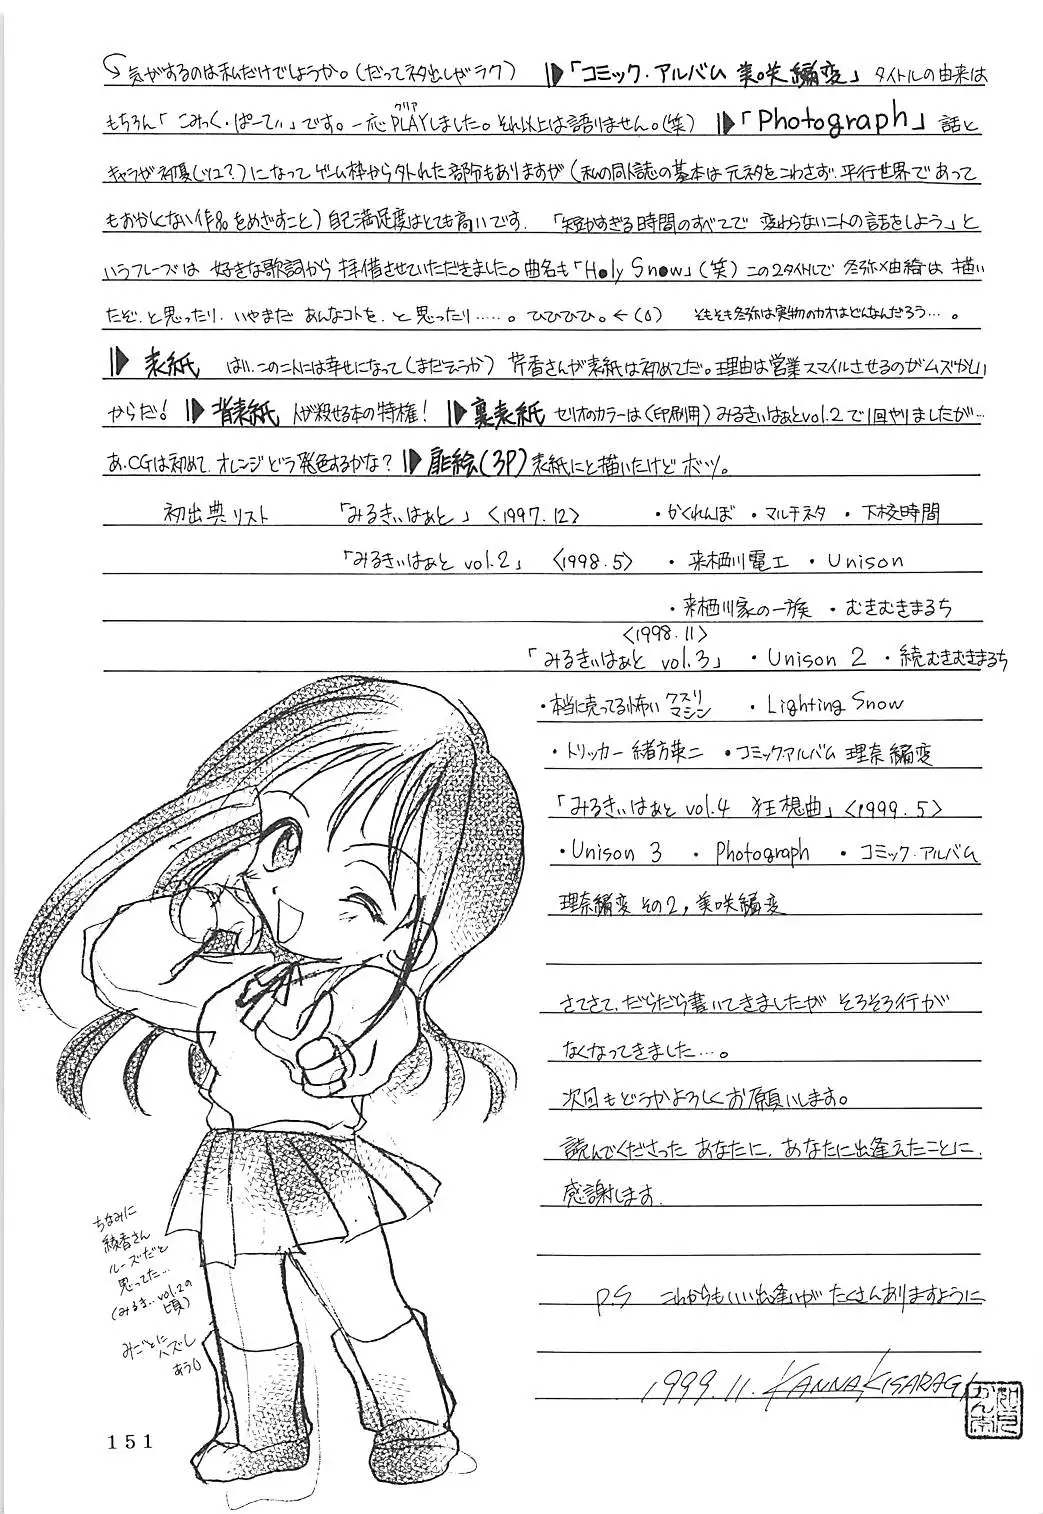 気がするのは私だけでしょうか。(だってネタ出しがラク) 「コミック・アルバム 美咲編変」タイトルの由来は
もちろん「こみっく・ぱーてぃ」です。一応PLAYしました。それ以上は語りません。(笑) 「Photograph」話と
クリア
キャラが神憂(ツユ?)になってゲーム枠から外れた部分もありますが(私の同人誌の基本は元ネタをこわさず、平行世界であって
もおかしくない作品をめざすこと)自己満足度はとても高いです。「短かすぎる時間のすべてで 変わらない二人の話をしよう」と
いうフレーズは 好きな歌詞から拝借させていただきました。曲名も「Holy Snow」(笑)この2タイトルで 冬弥×由綺は 描い
たぞ、と思ったり、いやまだ あんなコトを、と思ったり……。ひひひひ。 そもそも冬弥は実物のカオはどんなんだろう…。
表紙 はい、この二人には幸せになって(まだそうか) 芹香さんが表紙は初めてだ。理由は営業スマイルさせるのがムズかしい
からだ! 背表紙 人が殺せる本の特権! 裏表紙 セリオのカラーは(印刷用)みるきぃはぁとvol.2で1回やりましたが…
あ、CGは初めて、オレンジどう発色するかな? 扉絵(3P)表紙にと描いたけどボツ。
初出典リスト 「みるきぃはぁと」〈1997.12〉 ・かくれんぼ ・マルチネタ ・下校時間
「みるきぃはぁと vol.2」 〈1998.5〉 ・来栖川電工 ・Unison
・来栖川家の一族 ・むきむきまるち
〈1998.11〉
「みるきぃはぁと vol.3」 ・Unison 2 ・続むきむきまるち
・本当に売ってる怖い クスリマシン ・Lighting Snow
・トリッカー緒方英二 ・コミックアルバム 理奈編変
「みるきぃはぁと vol.4 狂想曲」〈1999.5〉
・Unison 3 ・Photograph ・コミック・アルバム
理奈編変 その2, 美咲編変
さてさて、だらだら書いてきましたが そろそろ行が
なくなってきました…。
次回もどうかよろしくお願いします。
読んでくださった あなたに、あなたに出逢えたことに
感謝します。
P.S これからもいい出逢いが たくさんありますように
1999.11. KANNA KISARAGI
ちなみに
綾香さん
ルーズだと
思ってた…
(みるき..vol.2の
頃)
みごとに
ハズし
あう
151